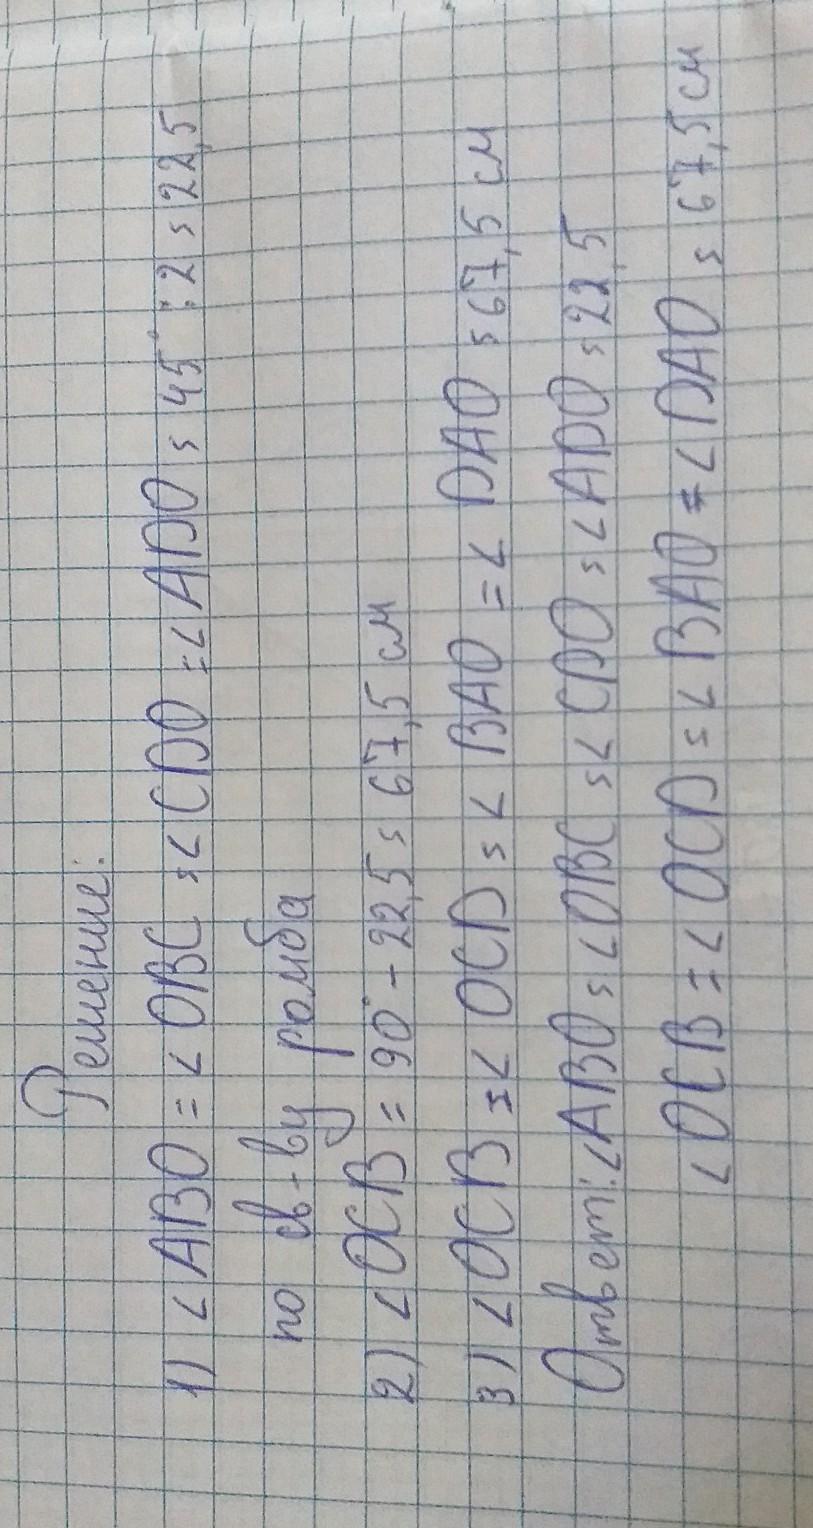 Решение:
1) ∠ABO = ∠OBC = ∠CDO = ∠ADO = 45° : 2 = 22,5
по св-ву ромба
2) ∠OCB = 90° - 22,5 = 67,5 см
3) ∠OCB = ∠OCD = ∠BAO = ∠DAO = 67,5 см
Ответ: ∠ABO = ∠OBC = ∠CDO = ∠ADO = 22,5
∠OCB = ∠OCD = ∠BAO = ∠DAO = 67,5 см